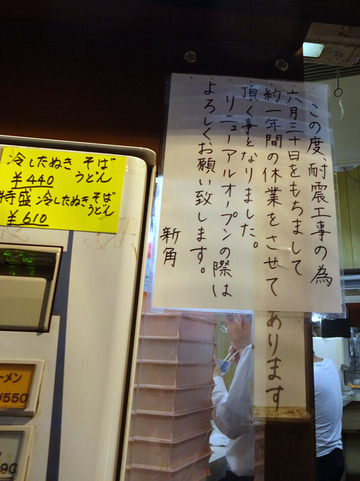 この度、耐震工事の為
六月三十日をもちまして
約一年間の休業をさせて
頂く事となりました。
リニューアルオープンの際は
よろしくお願い致します。
新角
あります
冷したぬき そば
うどん
¥440
特盛冷したぬき そば
うどん
¥610
ーメン
¥550
90